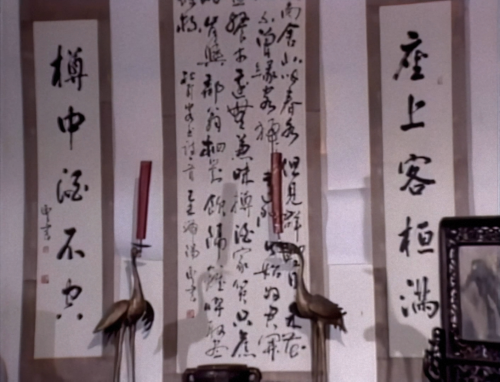 座上客恒滿
南舍北皆春水但見群鷗日日來花
不曾緣客掃蓬門今始為君開
飧市遠無兼味樽酒家貧只舊
肯與鄰翁相對飲隔籬呼取盡
餘杯
樽中酒不空